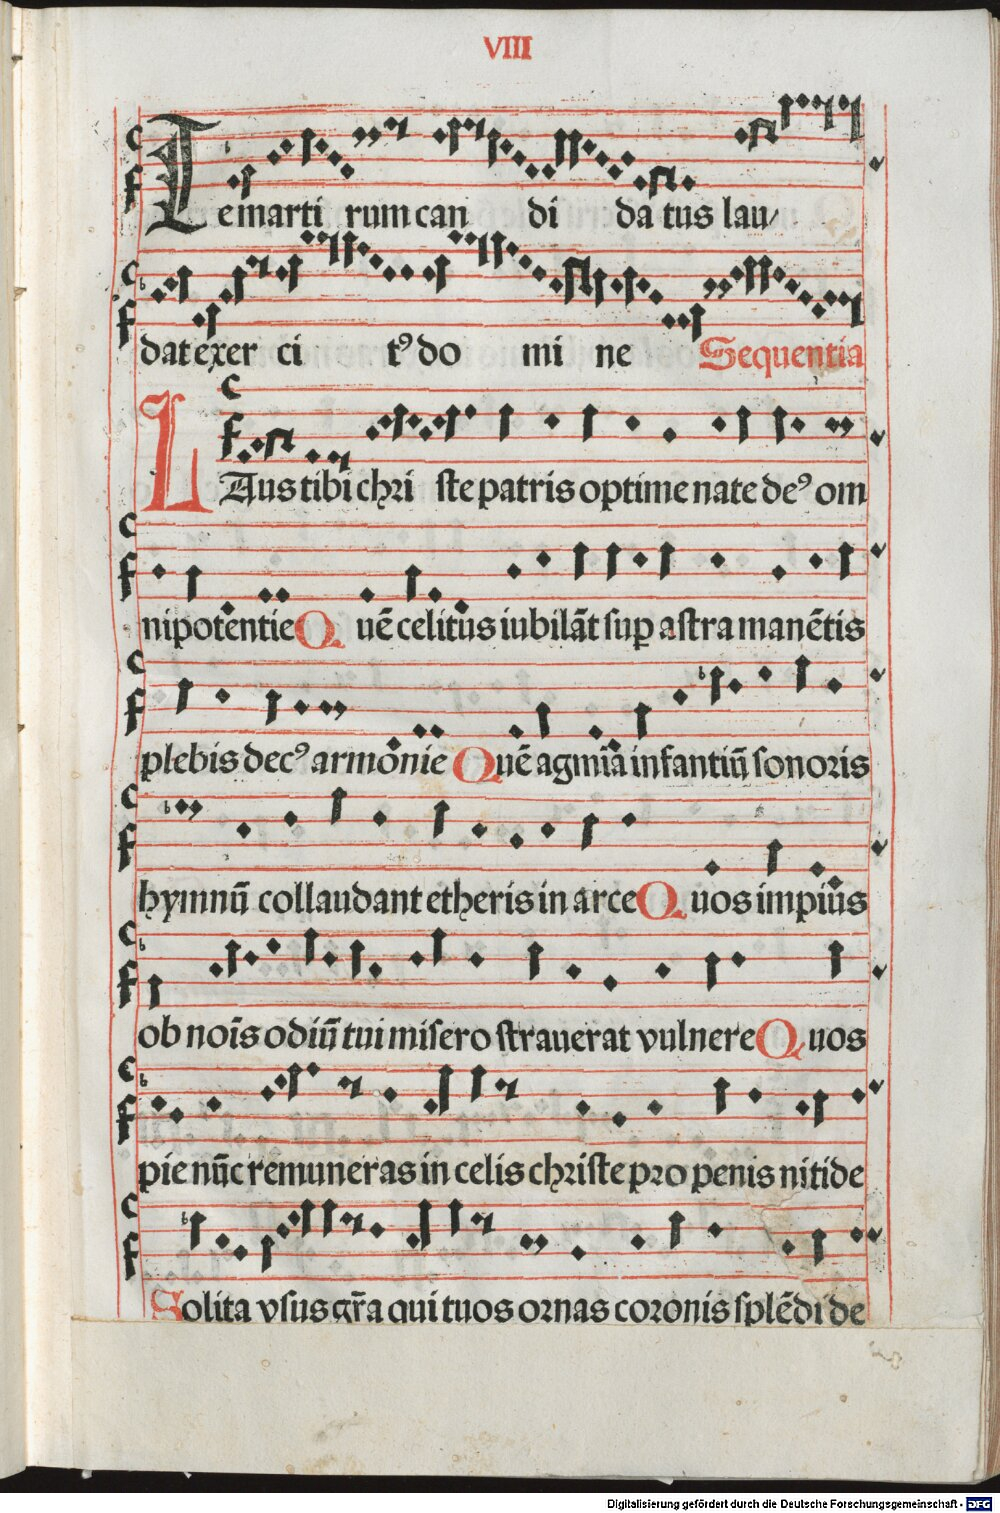 VIII
Te marti rum can di da tus lau/
dat exer ci tꝰ do mi ne Sequentia
LAus tibi chri ste patris optime nate deꝰ om
nipotentie Quē celitus iubilāt sup astra manētis
plebis decꝰ armonie Quē agmīa infantiū sonoris
hymnū collaudant etheris in arce Quos impius
ob noīs odiū tui misero strauerat vulnere Quos
pie nūc remuneras in celis christe pro penis nitide
Solita vsus gr̄a qui tuos ornas coronis splēdide
Digitalisierung gefördert durch die Deutsche Forschungsgemeinschaft - DFG